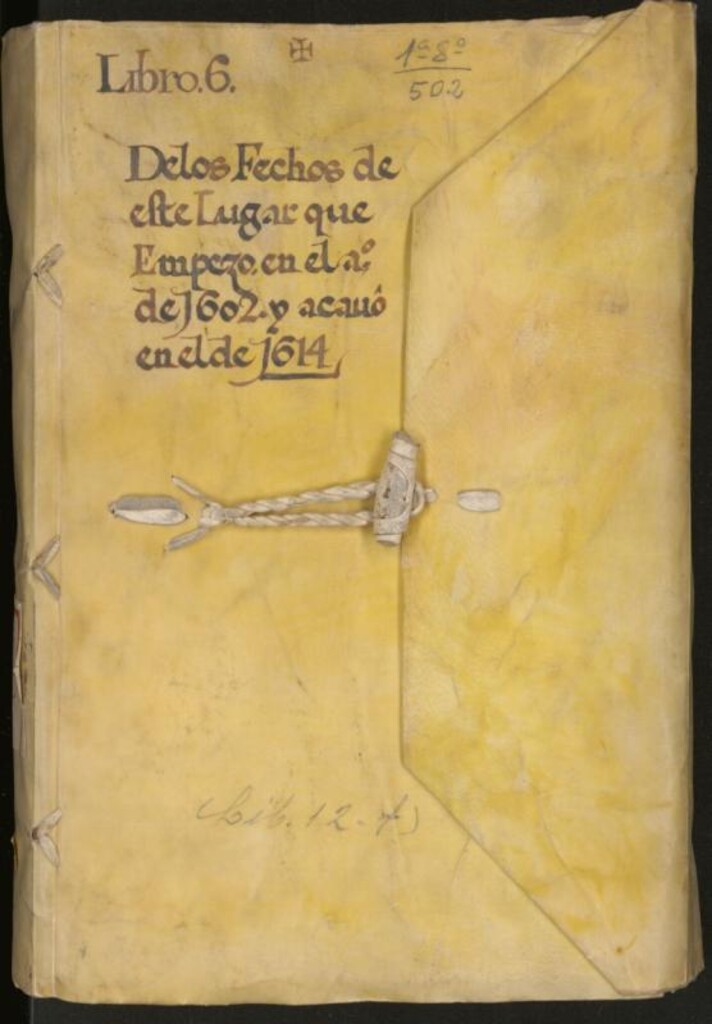 Libro.6. ✠
1ª 8º
502
Delos Fechos de
este Lugar que
Empezo. en el aº
de 1602. y acauô
en el de 1614
Lib. 12.